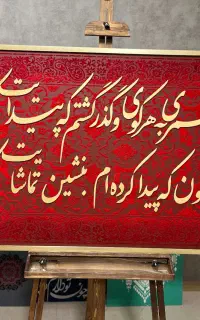 سری به هر کوی و گذر گشتم که پیدایت
ون که پیدا کرده ام بنشین تماشایت